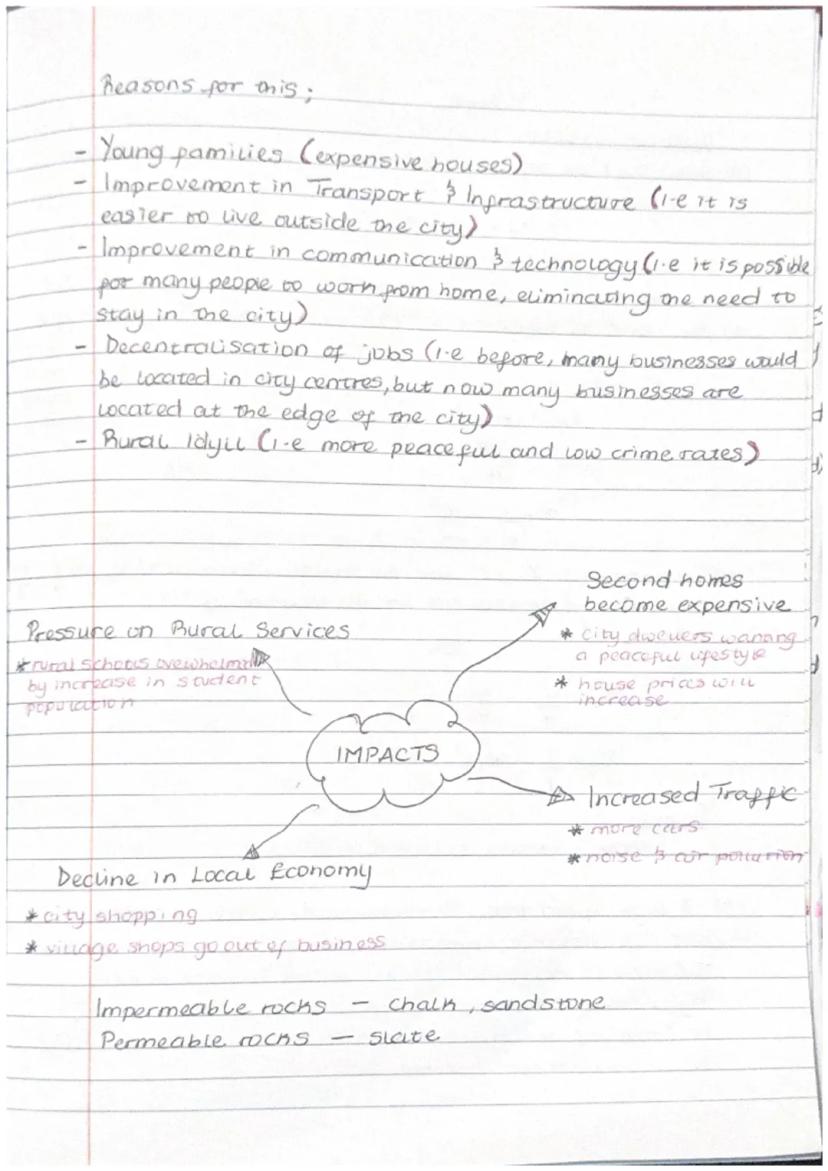 Reasons for this;
- Young families (expensive houses)
- Improvement in Transport & Infrastructure (i.e it is
easier to live outside the city)
- Improvement in communication & technology (i.e it is possible
for many people to work from home, eliminating the need to
stay in the city)
- Decentralisation of jobs (i.e before, many businesses would
be located in city centres, but now many businesses are
located at the edge of the city)
- Rural Idyll (i.e more peaceful and low crime rates)
Second homes
become expensive
* city dwellers wanting
a peaceful lifestyle
* house prices will
increase
Pressure on Rural Services
* rural schools overwhelmed
by increase in student
population
IMPACTS
Increased Traffic
* more cars
* noise & air pollution
Decline in Local Economy
* city shopping
* village shops go out of business
Impermeable rocks - chalk, sandstone
Permeable rocks - slate